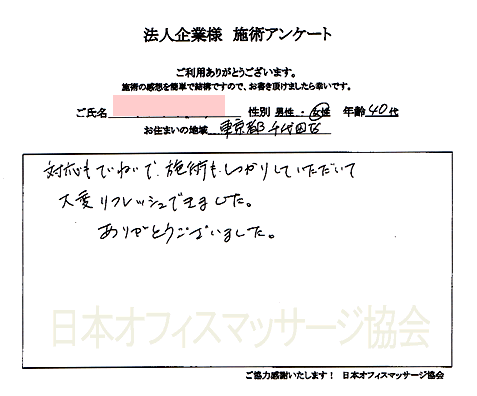 法人企業様 施術アンケート
ご利用ありがとうございます。
施術の感想を簡単で結構ですので、お書き頂けましたら幸いです。
ご氏名 性別 男性 ・ 女性 年齢 40代
お住まいの地域 東京都千代田区
対応もていねいで、施術もしっかりしていただいて
大変リフレッシュできました。
ありがとうございました。
日本オフィスマッサージ協会
ご協力感謝いたします! 日本オフィスマッサージ協会